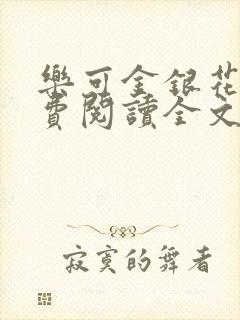 樂可金銀花
費閱讀全文
寂寞的舞者